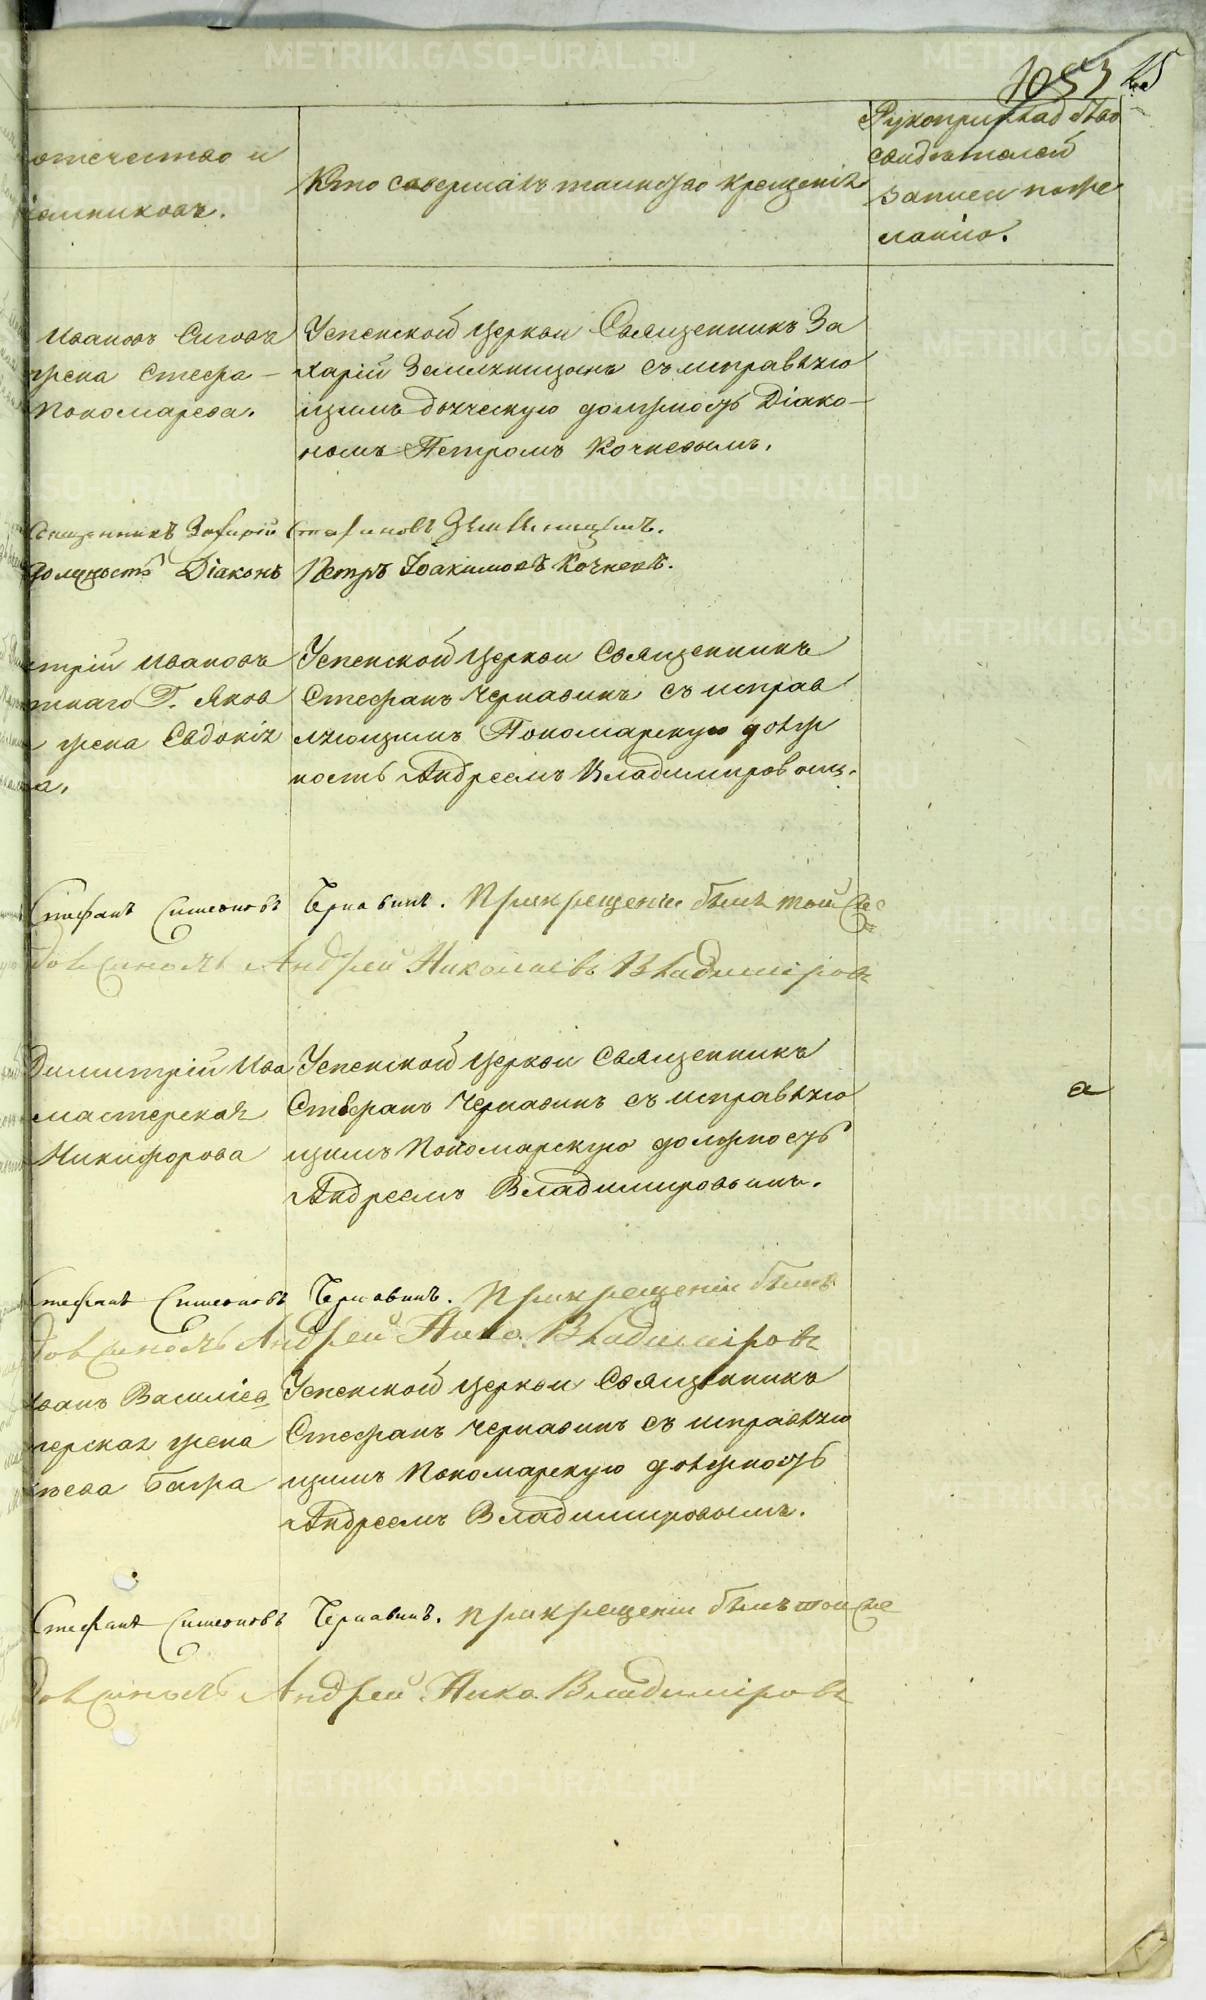 1053 25
отечество и
Кто совершалъ таинство крещенія
Рукоприкладство
свидѣтелей
записи по же
ланію.
Ивановъ Сиговъ
жена Стефа-
Пономарева.
Успенской церкви Священникъ За
харій Земляницынъ съ исправляю
щимъ дьяческую должность Діако-
номъ Петромъ Кочневымъ.
Священникъ Захарій Стефановъ Земляницынъ.
должность Діаконъ Петръ Іоакимовъ Кочневъ.
трій Ивановъ
тнаго Г. Яков
жена Евдокія
а.
Успенской церкви Священникъ
Стефанъ Чернавинъ съ исправ
ляющимъ Пономарскую долж
ность Андреемъ Владимировым.
Стефанъ Симеоновъ Чернавинъ. При крещеніи былъ той же
Андрей Николаевъ Владиміровъ
Димитрій Ива
мастерская
Никифорова
Успенской церкви Священникъ
Стефанъ Чернавинъ съ исправляю
щимъ Пономарскую должность
Андреемъ Владимировымъ.
а
Стефанъ Симеоновъ Чернавинъ. При крещеніи былъ
Андрей Нико. Владиміровъ
Иванъ Василіев
терская жена
Успенской церкви Священникъ
Стефанъ Чернавинъ съ исправляю
щимъ Пономарскую должность
Андреемъ Владимировымъ.
Стефанъ Симеоновъ Чернавинъ. При крещеніи былъ той же
Андрей Нико. Владиміровъ
METRIKI.GASO-URAL.RU